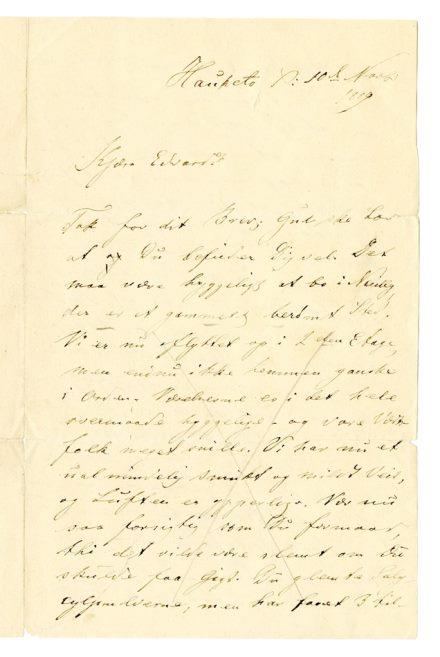 Hauketo D: 10d Novb
1889
Kjære Edvard!
Tak for dit Brev; Gud ske Lov
at Du befinder Dig vel. Det
maa være hyggeligt at bo i
der er et gammelt berømt Sted.
Vi er nu oflyttet op i 2den Etage,
men endnu ikke kommen ganske
i Orden. Værelserne er i det hele
overmaade hyggelige og vore Værts
folk meget snille. Vi har nu et
ualmindelig smukt og mildt Veir,
og Luften er ypperlig. Vær nu
saa forsigtig som Du formaar,
thi det vilde være slemt om Du
skulde faa Gigt. Du glemte Saly
cylpulverne, men har faaet 3 til